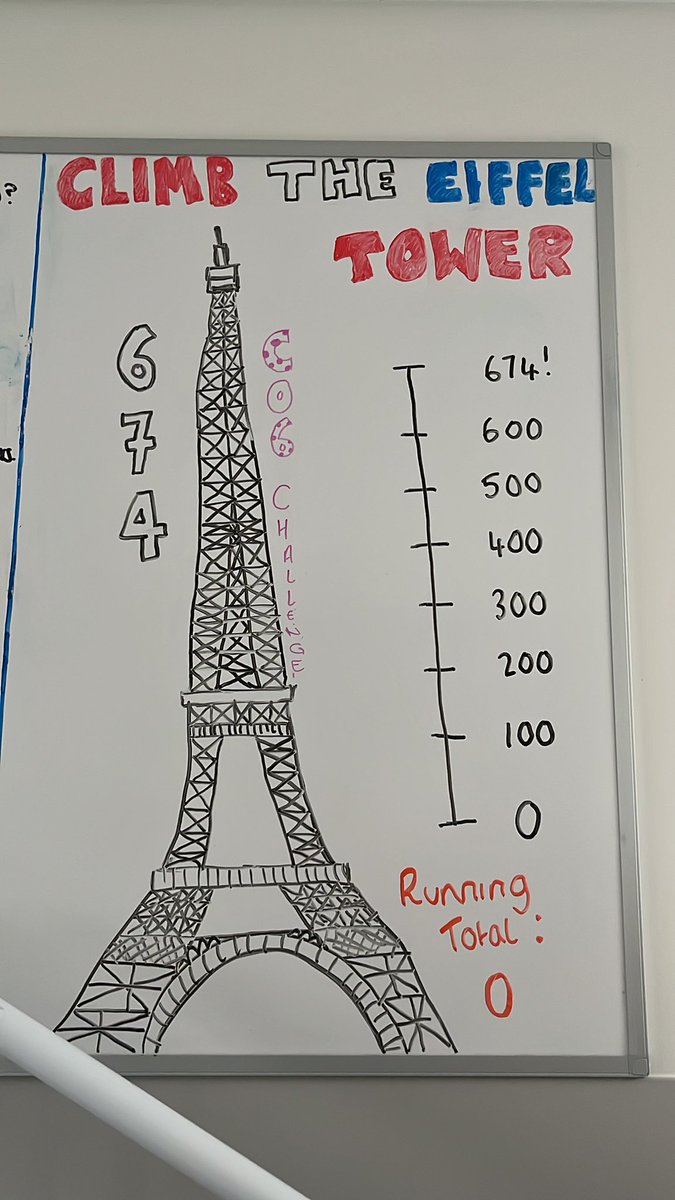 CLIMB THE EIFFEL
TOWER
674
C06 CHALLENGE
674!
600
500
400
300
200
100
0
Running
Total:
0